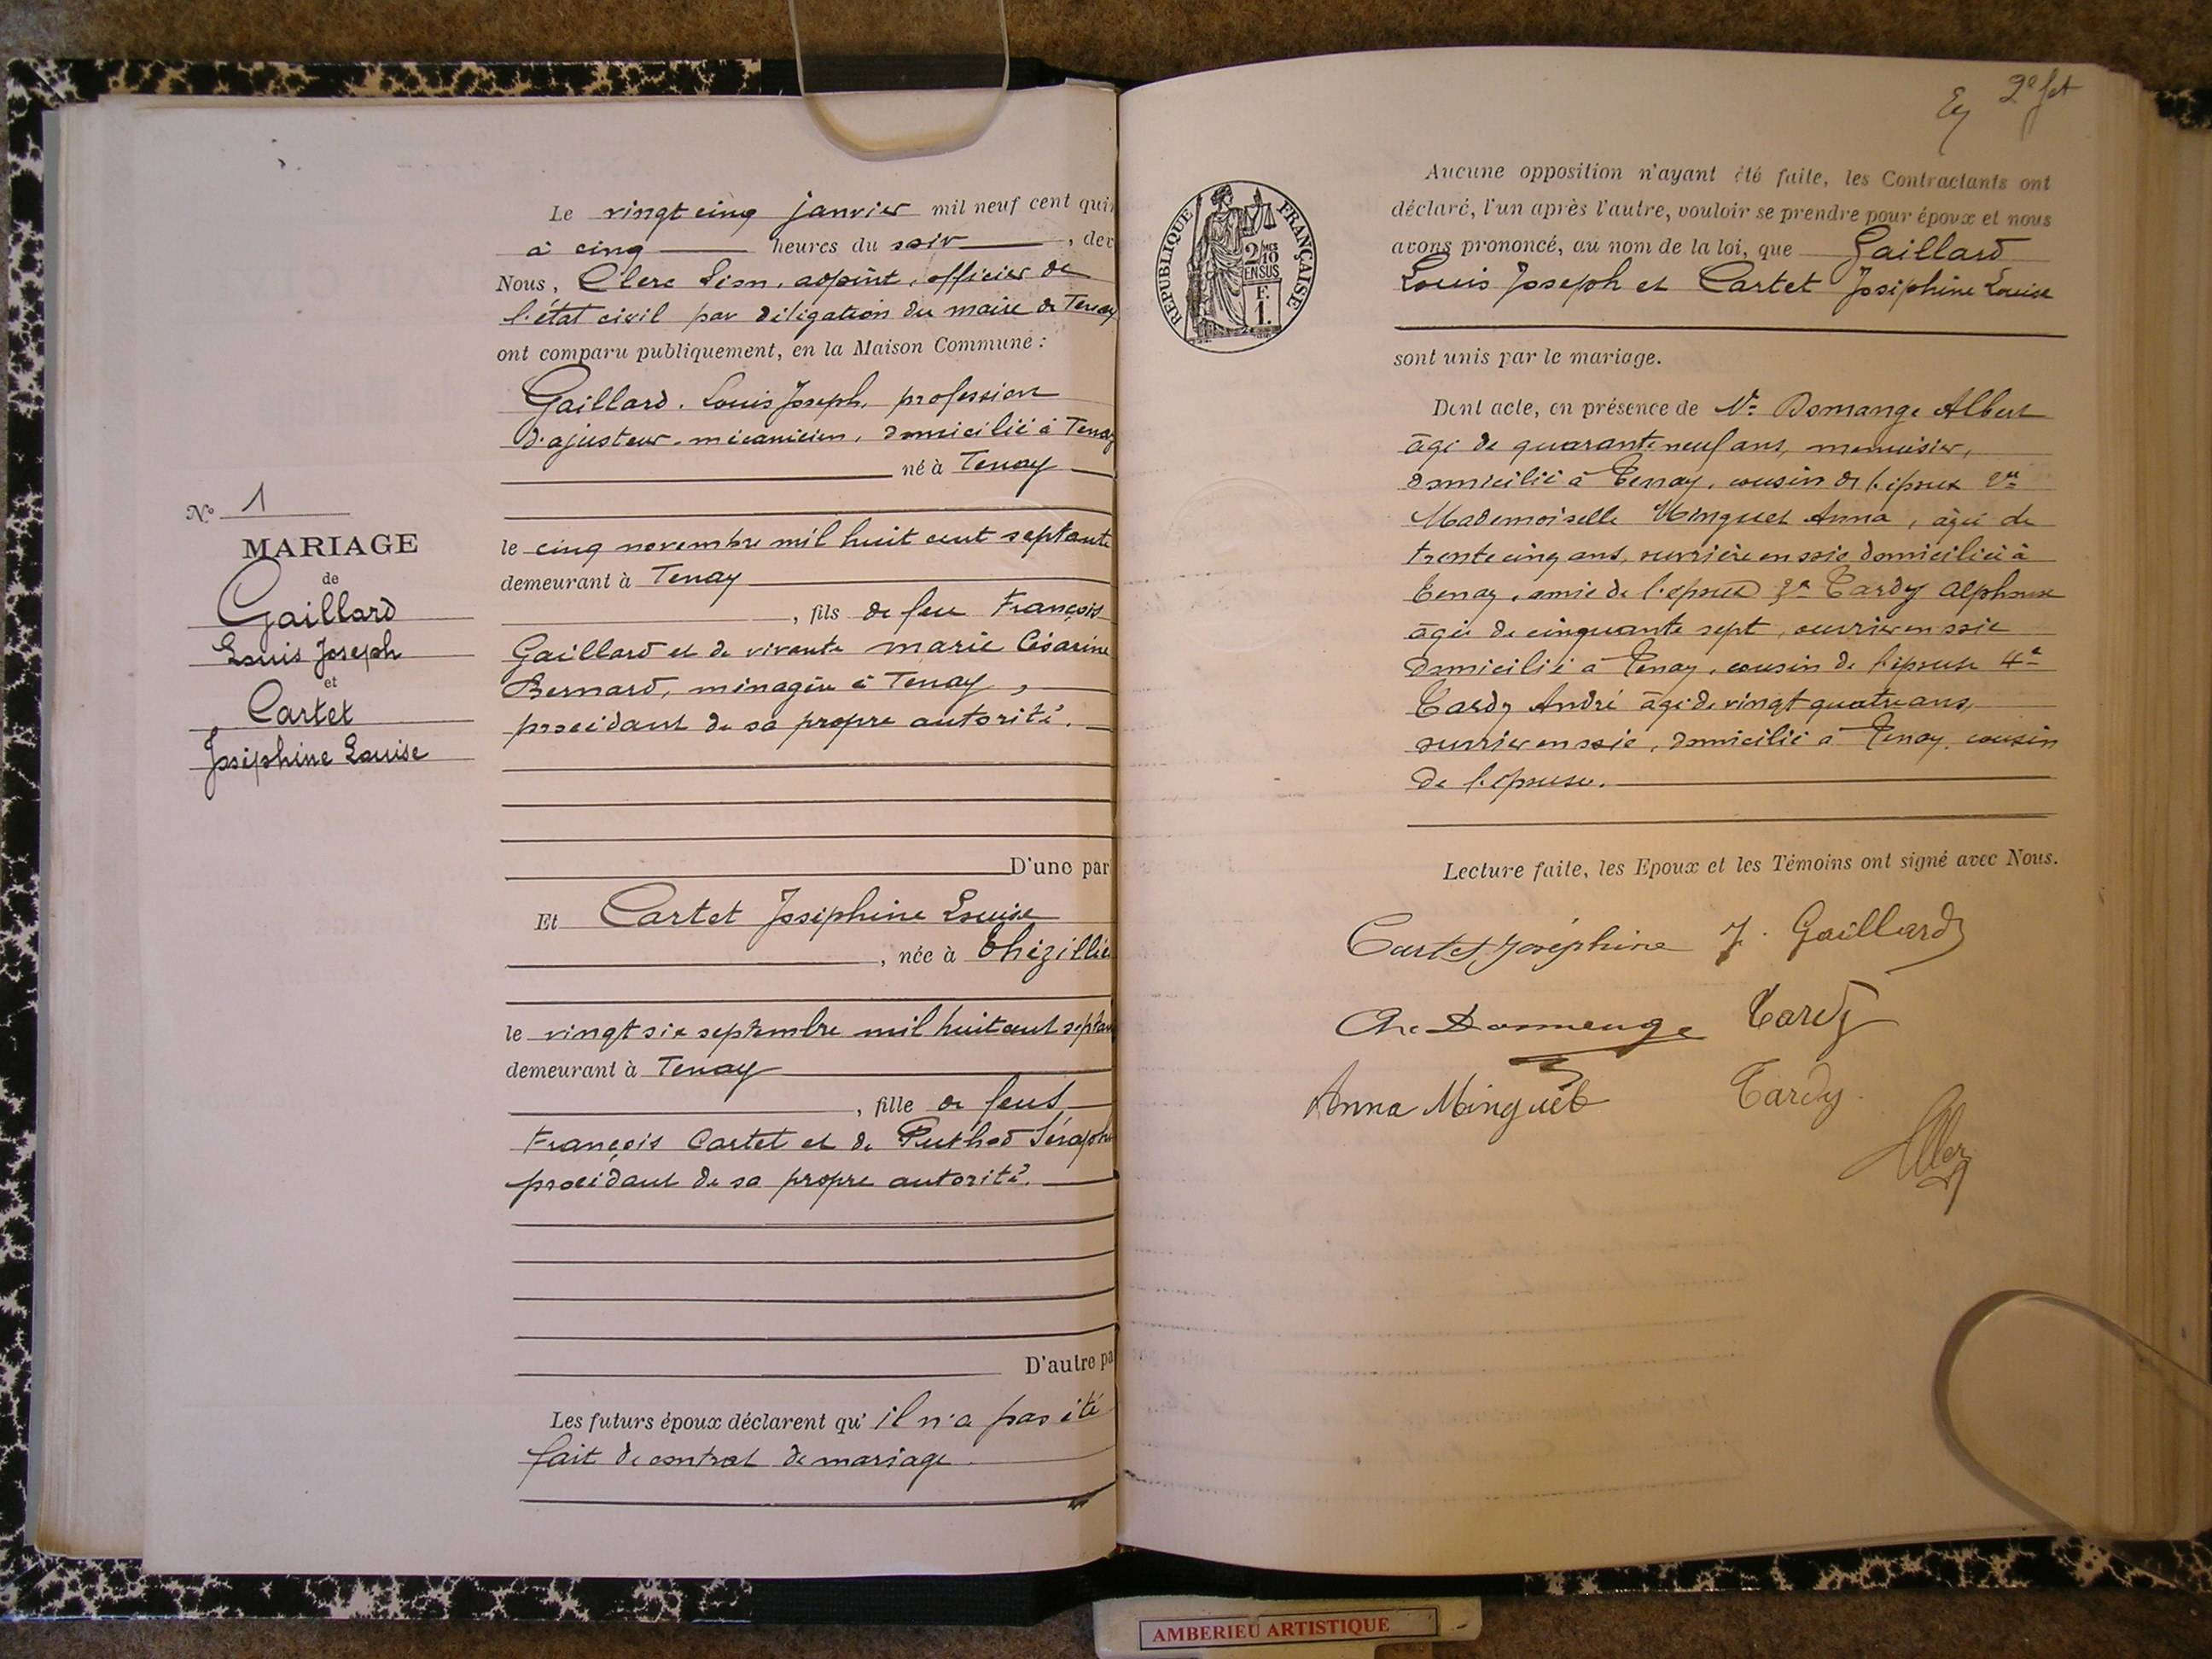 Le vingt cinq janvier mil neuf cent qui
à cinq heures du soir, dev
Nous, Clerc Léon, adjoint, officier de
l'état civil par délégation du maire de Tenay
ont comparu publiquement, en la Maison Commune :
Gaillard. Louis Joseph, profession
d'ajusteur-mécanicien, domicilié à Tenay
né à Tenay
N° 1
MARIAGE
de
Gaillard
Louis Joseph
et
Cartet
Joséphine Louise
le cinq novembre mil huit cent septante
demeurant à Tenay
, fils de feu François
Gaillard et de vivante marie Césarine
Bernard, ménagère à Tenay,
procédant de sa propre autorité.
D'une par
Et Cartet Joséphine Louise
, née à Thézillie
le vingt six septembre mil huit cent septan
demeurant à Tenay
, fille de feus
François Cartet et de Puthod Séraphi
procédant de sa propre autorité.
D'autre pa
Les futurs époux déclarent qu' il n'a pas été
fait de contrat de mariage.
2e fet
RÉPUBLIQUE FRANÇAISE
2/10
EN SUS
F.
1.
Aucune opposition n'ayant été faite, les Contractants ont
déclaré, l'un après l'autre, vouloir se prendre pour époux et nous
avons prononcé, au nom de la loi, que Gaillard
Louis Joseph et Cartet Joséphine Louise
sont unis par le mariage.
Dont acte, en présence de Domange Albert
âgé de quarante neuf ans, menuisier,
domicilié à Tenay, cousin de l'époux 2me
Mademoiselle Minguet Anna, âgée de
trente cinq ans, ouvrière en soie domiciliée à
Tenay, amie de l'époux 3e Tardy Alphonse
âgé de cinquante sept, ouvrier en soie
domicilié à Tenay, cousin de l'épouse 4e
Tardy André âgé de vingt quatre ans,
ouvrier en soie, domicilié à Tenay, cousin
de l'épouse.
Lecture faite, les Epoux et les Témoins ont signé avec Nous.
Cartet Joséphine J. Gaillard
Domenge Tardy
Anna Minguet Tardy
AMBERIEU ARTISTIQUE